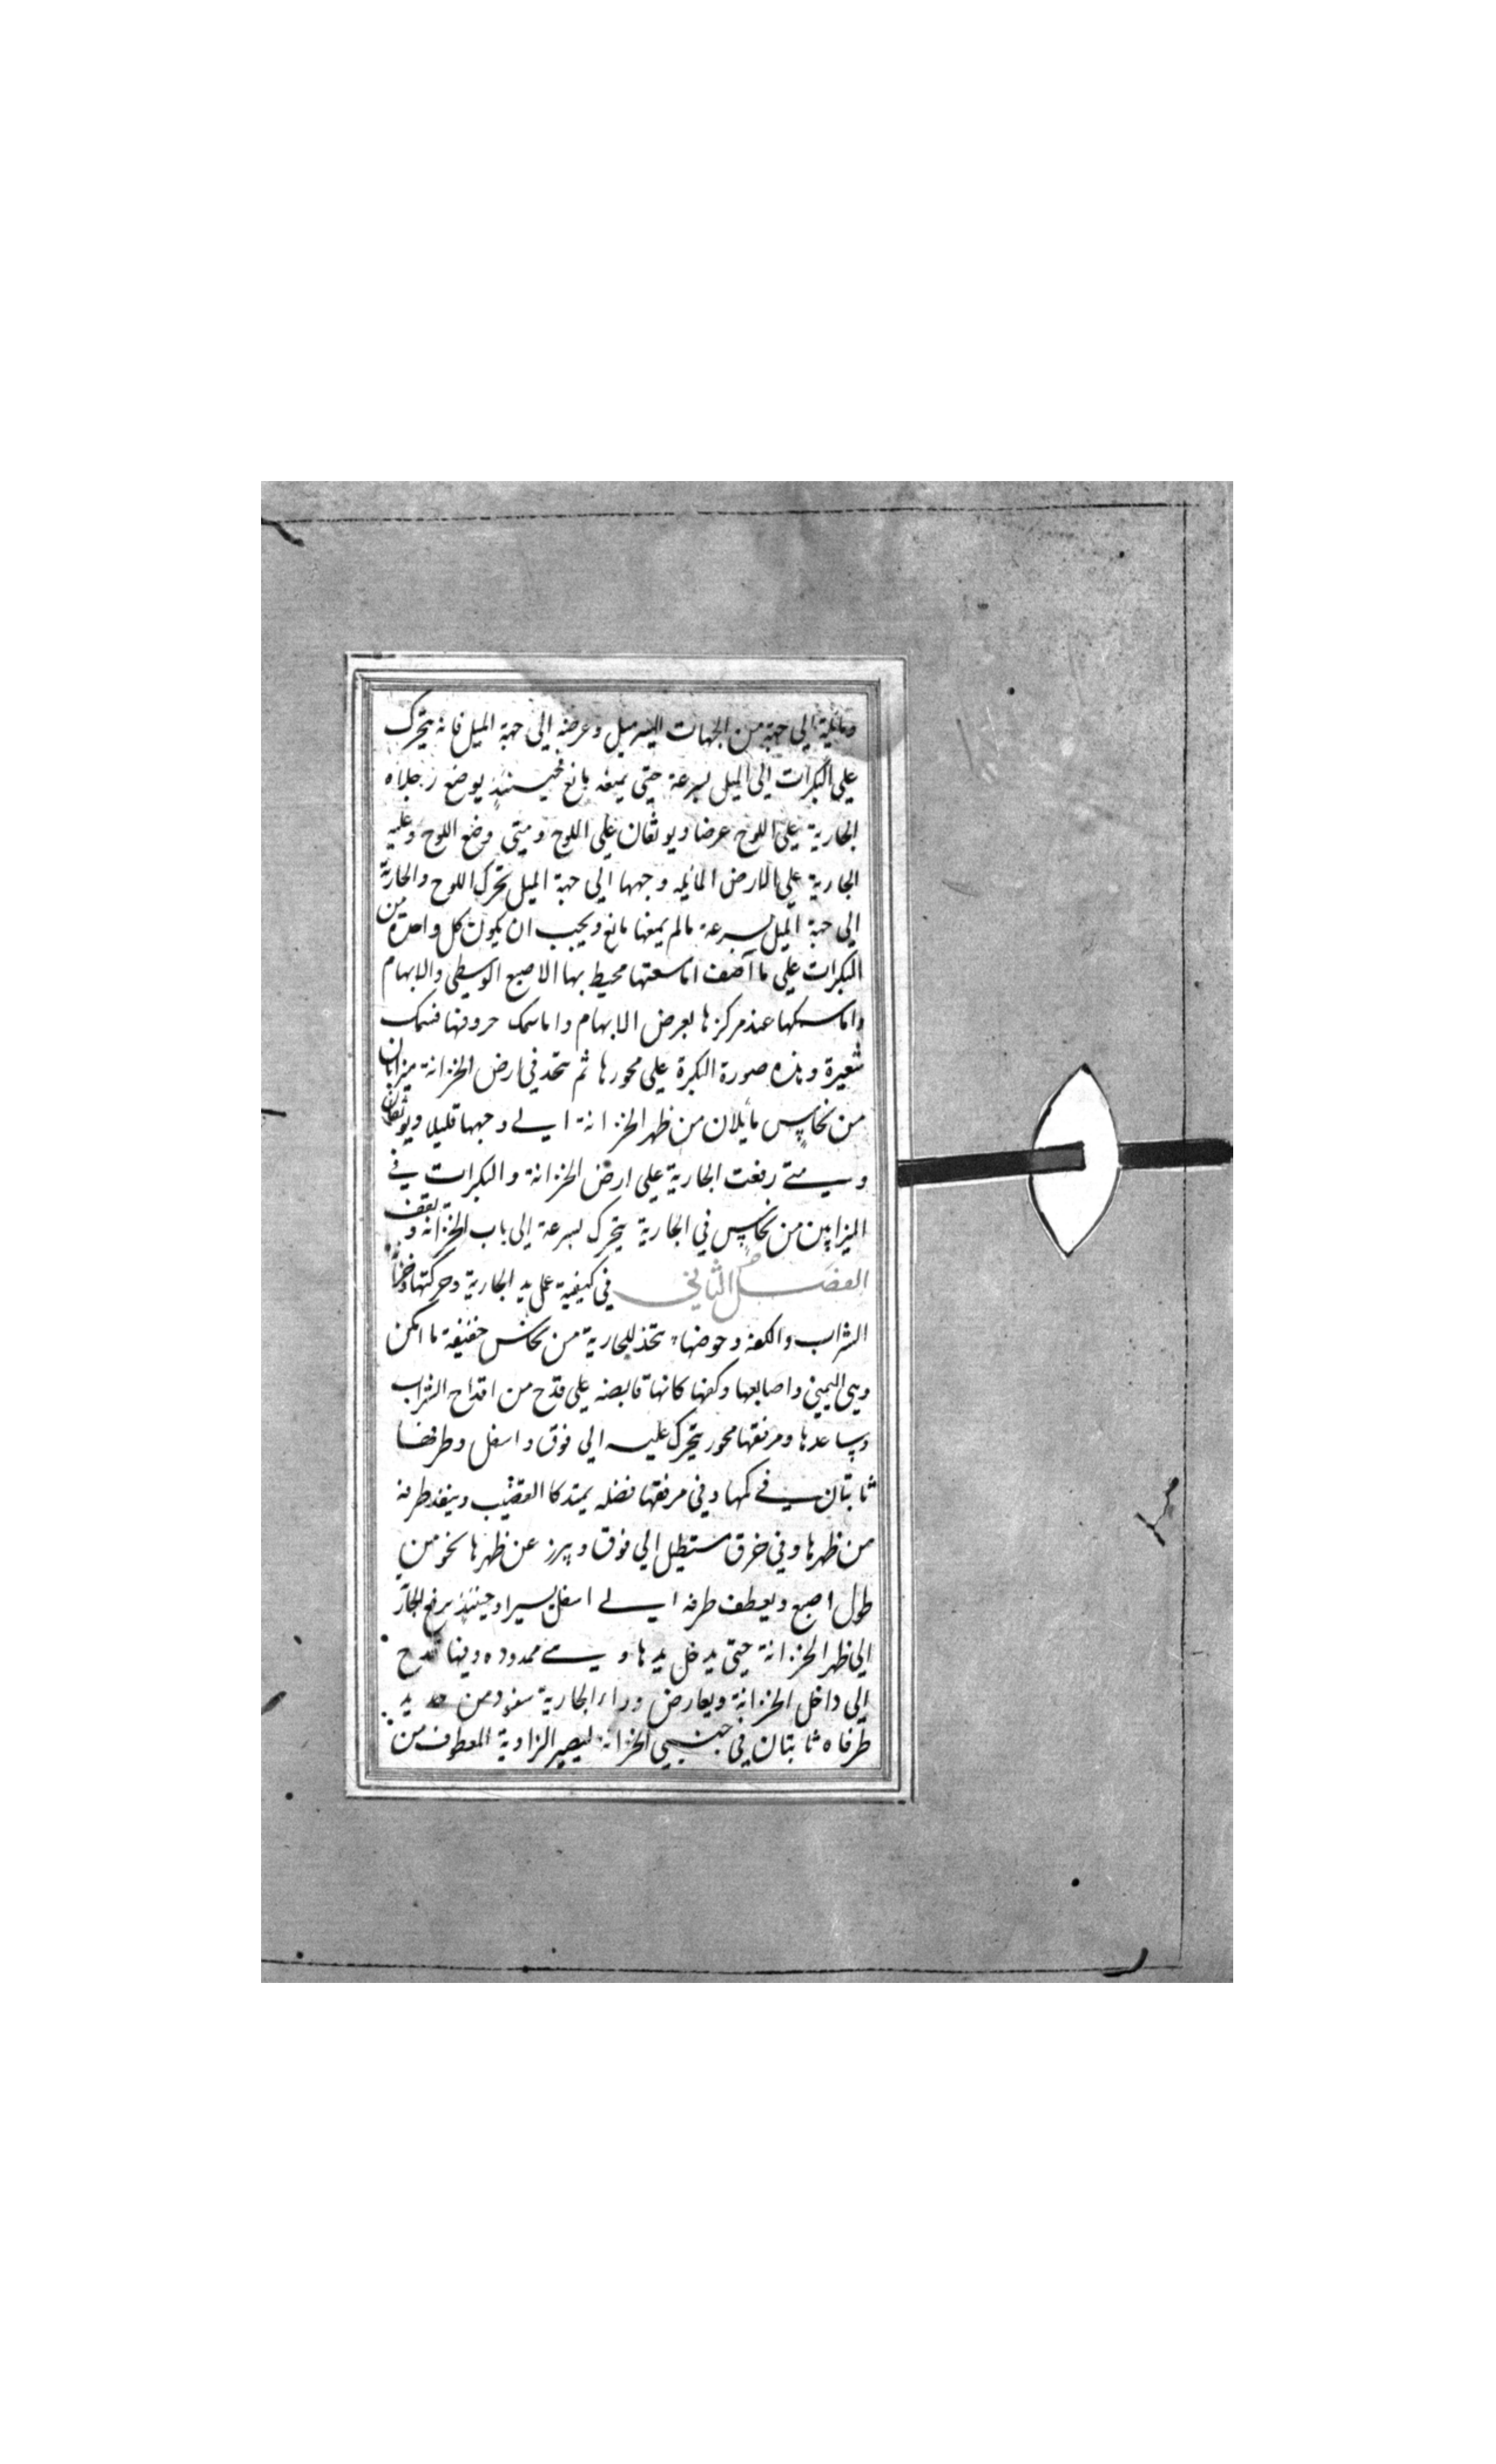 ومائلة الى جهة من الجهات اليسر ميل وعرضه الى جهة الميل فانه يتحرك
على البكرات الى الميل بسرعة حتى يمنعه مانع فحينئذ يوضع رجلاه
الجارية على اللوح عرضا ويوثقان على اللوح ومتى وضع اللوح وعليه
الجارية على الارض المايله وجهها الى جهة الميل تحرك اللوح والجارية
الى جهة الميل بسرعة مالم يمنعها مانع ويجب ان يكون كل واحدة من
البكرات على ما آصف اما سعتها محيط بها الاصبع الوسطى والابهام
واما سمكها عند مركزها بعرض الابهام واما سمك حروفها فسمك
شعيرة وهذه صورة البكرة على محورها ثم يتخذ في ارض الخزانة ميزابان
من نحاس مايلان من ظهر الخزانة الى وجهها قليلا ويوثقان
ومتى رفعت الجارية على ارض الخزانة والبكرات في
الميزابين من نحاس في الجارية يتحرك بسرعة الى باب الخزانه ويقف
الفصل الثاني في كيفية عمل يد الجارية وحركتها وخزانة
الشراب والكفة وحوضها يتخذ للجارية من نحاس خفيفة ما امكن
وهي اليمنى واصابعها وكفها كانها قابضه على قدح من اقداح الشراب
وساعدها ومرفقها محور يتحرك عليه الى فوق واسفل وطرفها
ثابتان في كمها وفي مرفقها فضله يمتد كالقضيب وينفذ طرفه
من ظهرها وفي خرق مستطيل الى فوق ويبرز عن ظهرها نحو من
طول اصبع ويعطف طرفه الى اسفل يسيرا وحينئذ يرفع الجارية
الى ظهر الخزانة حتى يدخل يدها وهي ممدوده وفيها قدح
الى داخل الخزانة ويعارض وراء الجارية سفود من حديد
طرفاه ثابتان في جنبي الخزانة ليصير الزاوية المعطوف من